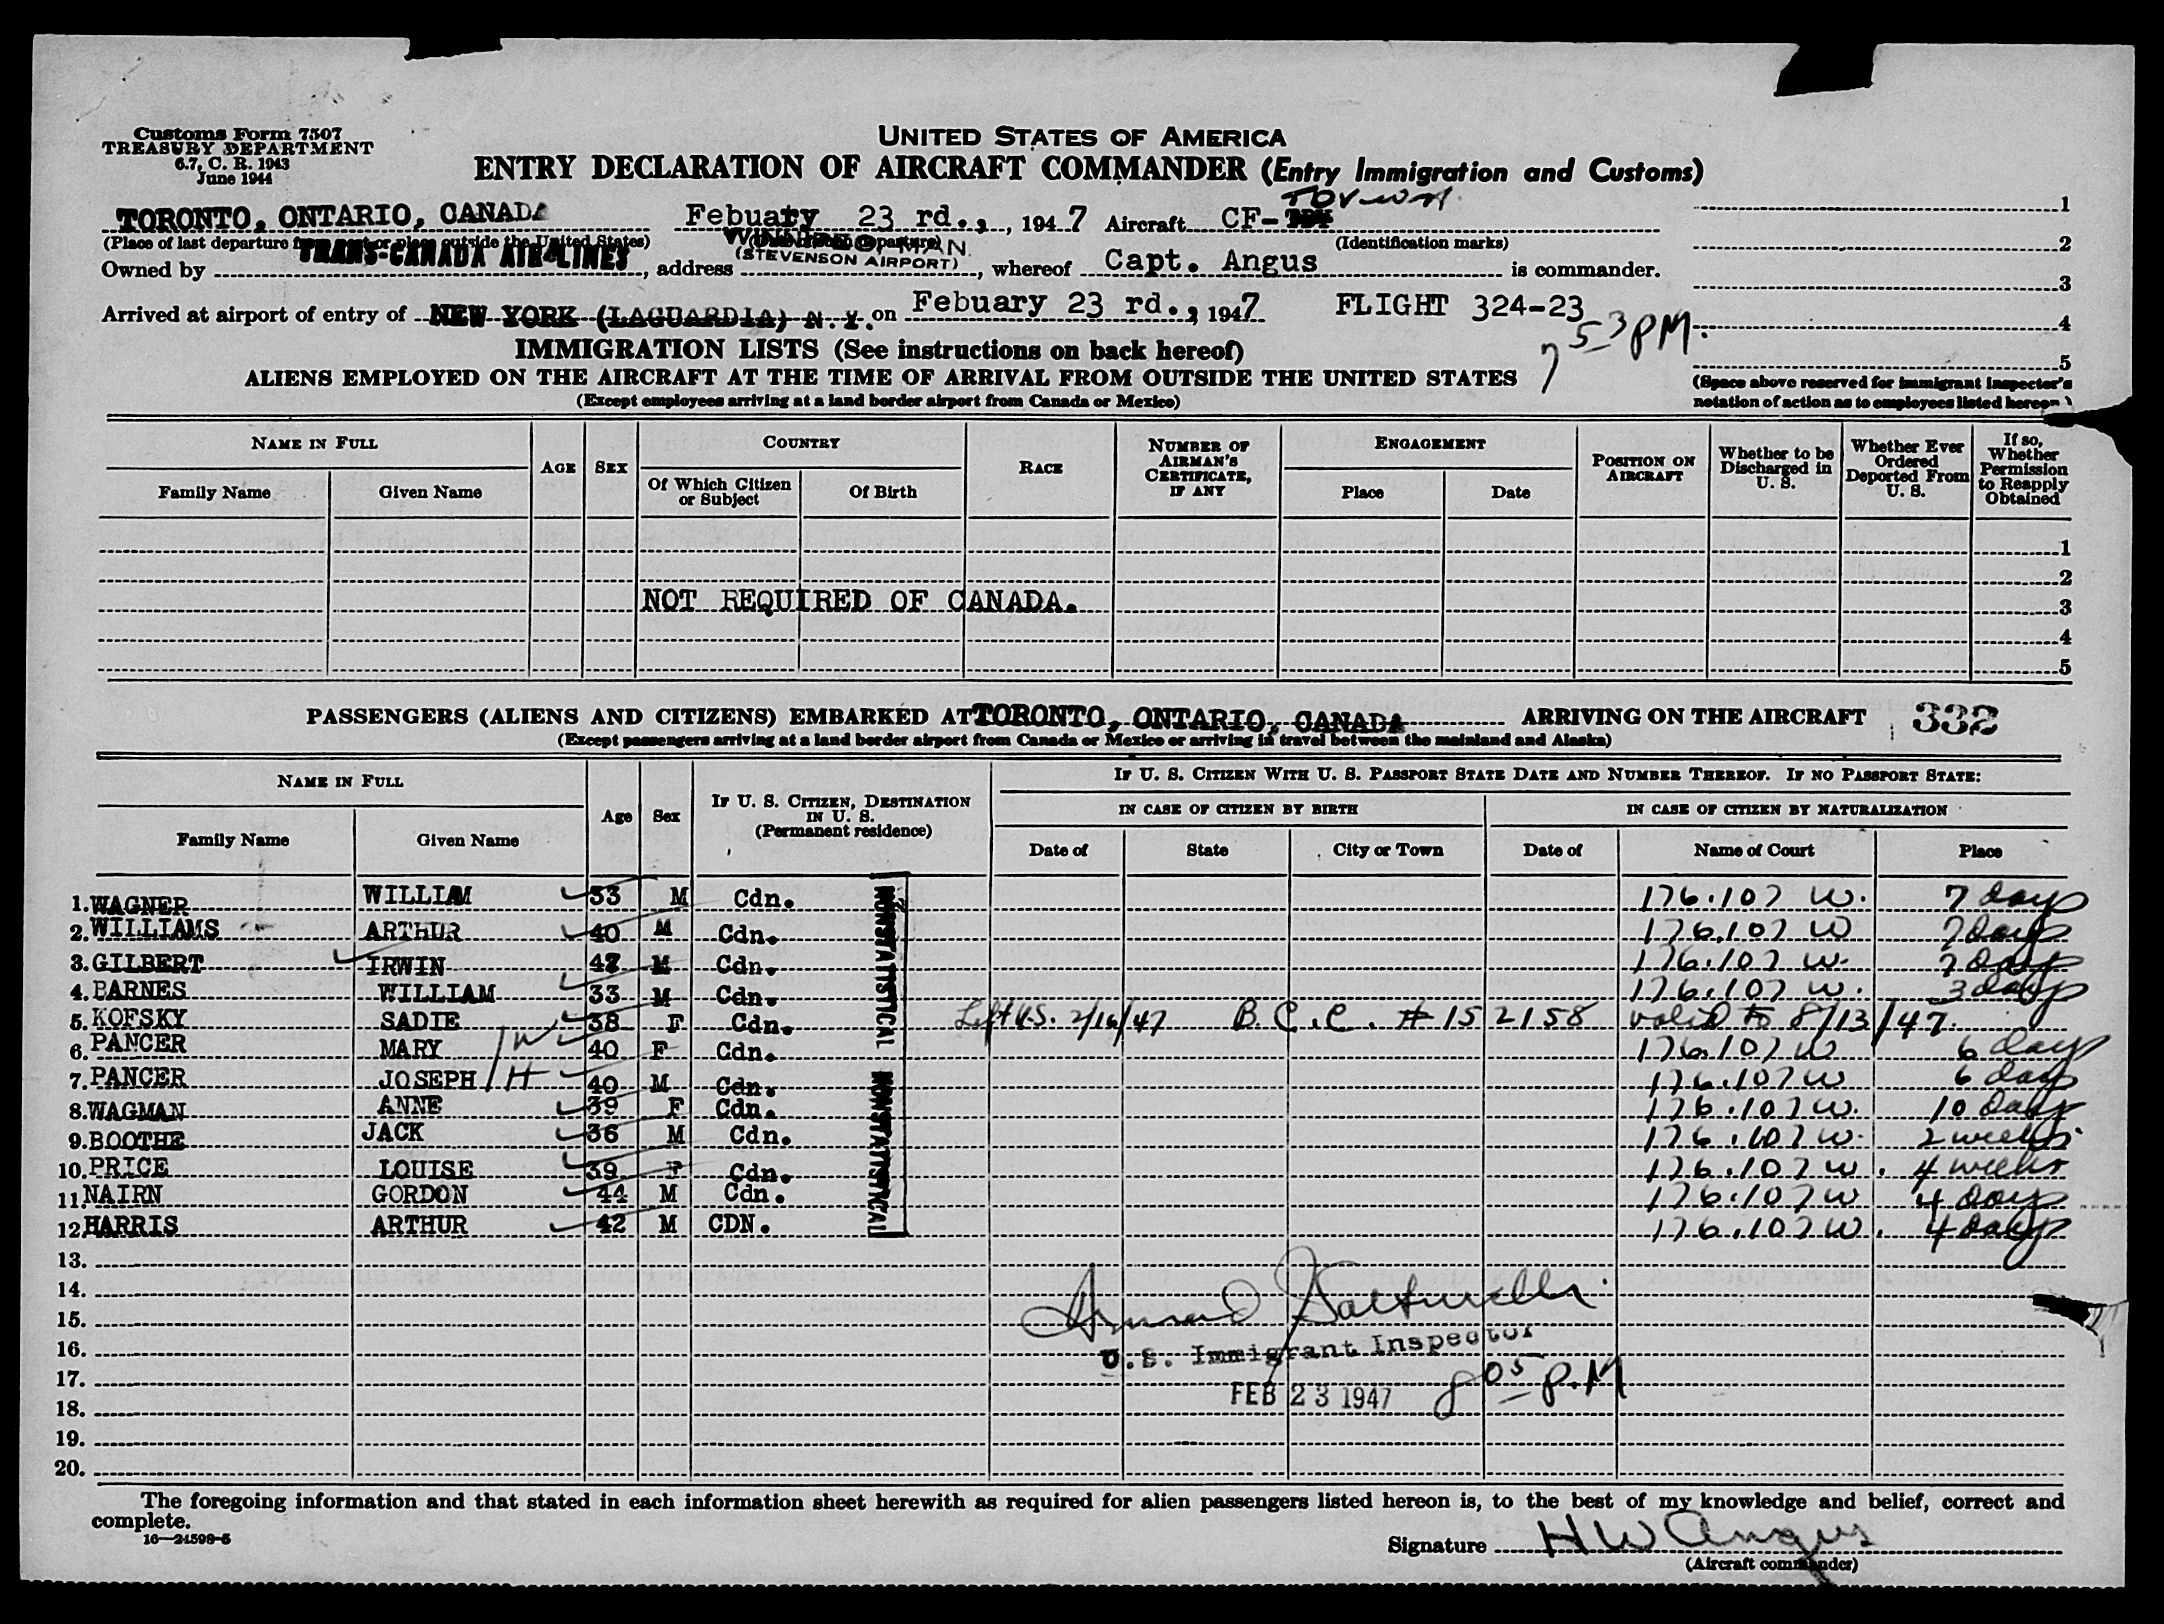 Customs Form 7507
TREASURY DEPARTMENT
6.7, C. R. 1943
June 1944
UNITED STATES OF AMERICA
ENTRY DECLARATION OF AIRCRAFT COMMANDER (Entry Immigration and Customs)
TORONTO, ONTARIO, CANADA Febuaty 23 rd., , 1947 Aircraft CF- 1
(Place of last departure from port or place outside the United States) (Date of departure) (Identification marks) 2
WINNIPEG, MAN
Owned by TRANS-CANADA AIR LINES, address (STEVENSON AIRPORT), whereof Capt. Angus is commander.
3
Arrived at airport of entry of NEW YORK (LAGUARDIA) N. Y. on Febuary 23 rd., 1947 FLIGHT 324-23
4
7 53 PM.
5
IMMIGRATION LISTS (See instructions on back hereof)
ALIENS EMPLOYED ON THE AIRCRAFT AT THE TIME OF ARRIVAL FROM OUTSIDE THE UNITED STATES
(Except employees arriving at a land border airport from Canada or Mexico)
(Space above reserved for immigrant inspector's
notation of action as to employees listed hereon)
NAME IN FULL AGE SEX COUNTRY RACE NUMBER OF AIRMAN'S CERTIFICATE, IF ANY ENGAGEMENT POSITION ON AIRCRAFT Whether to be Discharged in U. S. Whether Ever Ordered Deported From U. S. If so, Whether Permission to Reapply Obtained
Family Name Given Name Of Which Citizen or Subject Of Birth Place Date
1
2
NOT REQUIRED OF CANADA. 3
4
5
PASSENGERS (ALIENS AND CITIZENS) EMBARKED AT TORONTO, ONTARIO, CANADA ARRIVING ON THE AIRCRAFT 332
(Except passengers arriving at a land border airport from Canada or Mexico or arriving in travel between the mainland and Alaska)
NAME IN FULL Age Sex IF U. S. CITIZEN, DESTINATION IN U. S. (Permanent residence) IF U. S. CITIZEN WITH U. S. PASSPORT STATE DATE AND NUMBER THEREOF. IF NO PASSPORT STATE:
IN CASE OF CITIZEN BY BIRTH IN CASE OF CITIZEN BY NATURALIZATION
Family Name Given Name Date of State City or Town Date of Name of Court Place
1. WAGNER WILLIAM 33 M Cdn. 176.107 W. 7 days
2. WILLIAMS ARTHUR 40 M Cdn. 176.107 W 7 days
3. GILBERT IRWIN M Cdn. 176.107 W. 7 days
4. BARNES WILLIAM 33 M Cdn. 176.107 W. 3 days
5. KOFSKY SADIE 38 F Cdn. Left U.S. 2/16/47 B.C.C. # 152158 valid to 8/13/47.
6. PANCER MARY W 40 F Cdn. 176.107 W 6 days
7. PANCER JOSEPH H 40 M Cdn. 176.107 W 6 days
8. WAGMAN ANNE 39 F Cdn. 176.107 W. 10 days
9. BOOTHE JACK 36 M Cdn. 176.107 W. 2 weeks.
10. PRICE LOUISE 39 F Cdn. 176.107 W. 4 weeks
11. NAIRN GORDON 44 M Cdn. 176.107 W 4 days
12. HARRIS ARTHUR 42 M CDN. 176.107 W. 4 days
NONSTATISTICAL NONSTATISTICAL
13.
14.
15.
16. U.S. Immigrant Inspector
17.
18. FEB 23 1947 8 05 P.M
19.
20.
The foregoing information and that stated in each information sheet herewith as required for alien passengers listed hereon is, to the best of my knowledge and belief, correct and
complete.
16—24599-5
Signature H W Angus
(Aircraft commander)